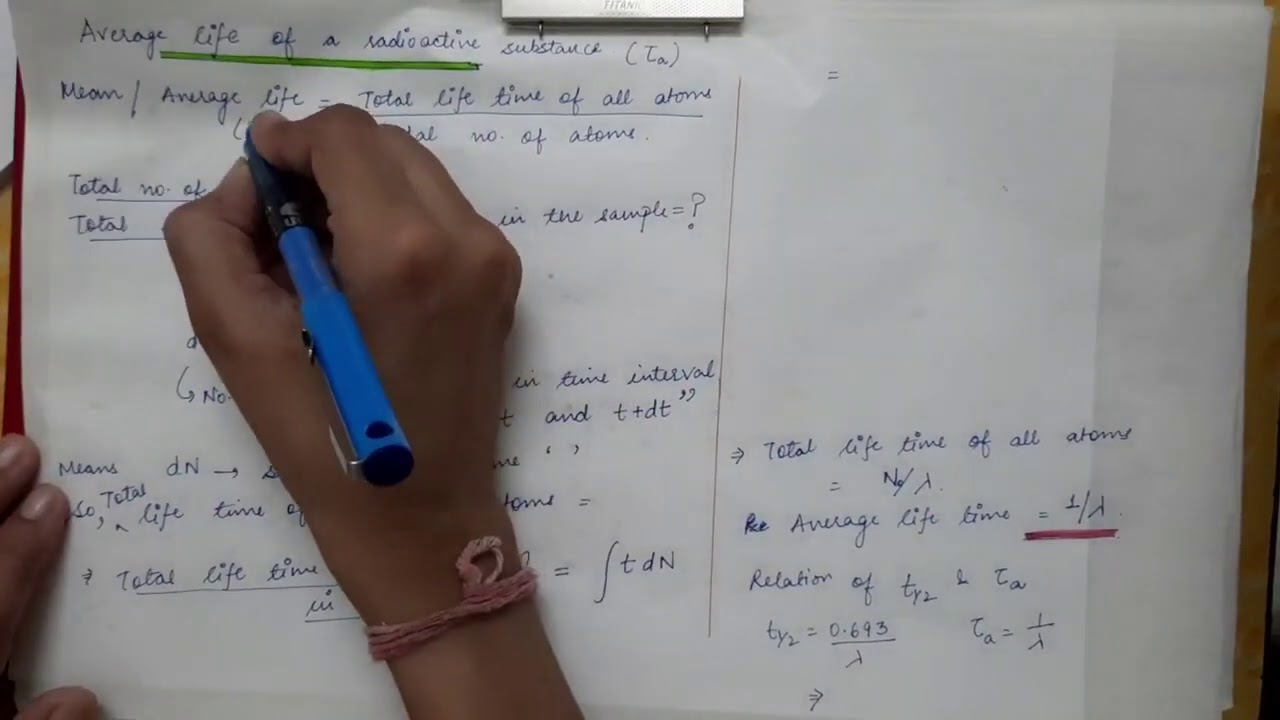 TITANIC
Average life of a radioactive substance (τₐ)
Mean / Average life = Total life time of all atoms
no. of atoms.
Total no. of
Total in the sample = ?
No. in time interval
t and t+dt”
Means dN →
So, Total life time of =
⇒ Total life time = ∫ t dN
in
=
⇒ Total life time of all atoms
= N₀/λ.
Average life time = 1/λ.
Relation of t₁/₂ & τₐ
t₁/₂ = 0.693/λ τₐ = 1/λ
⇒